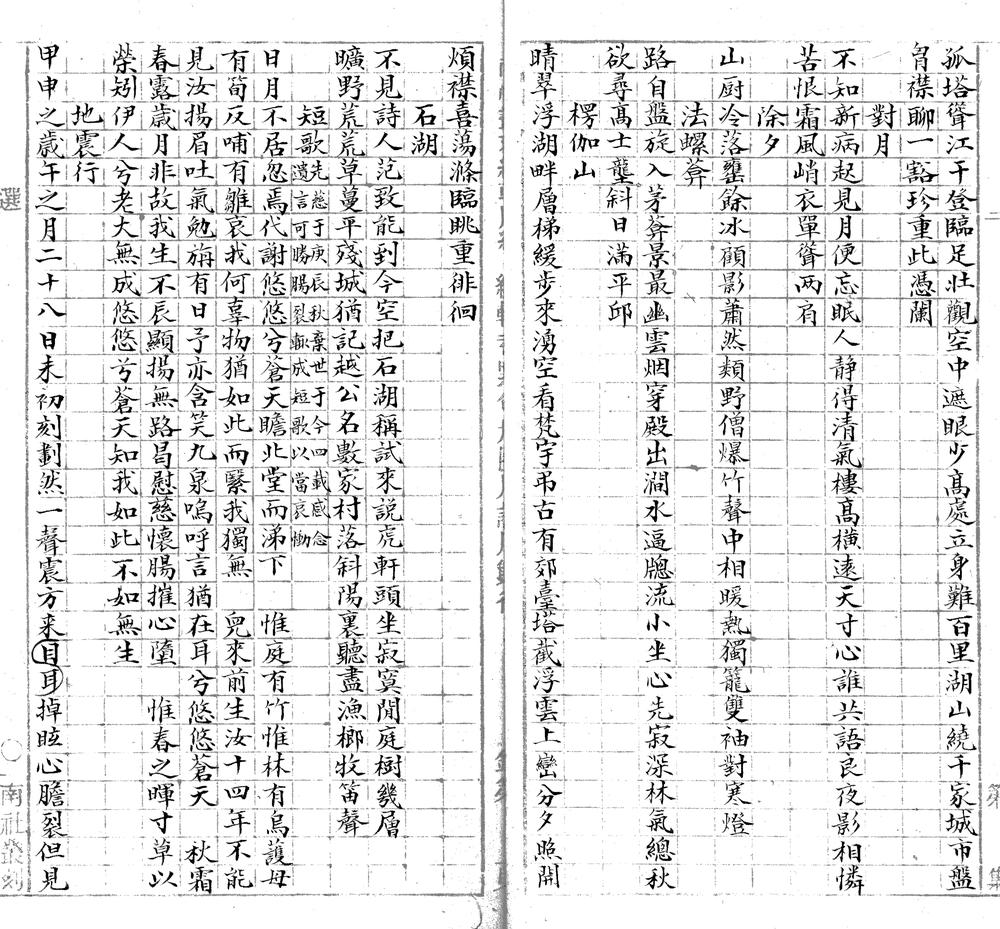 孤塔聳江干登臨足壯觀空中遮眼少高處立身難百里湖山繞千家城市盤
胷襟聊一豁珍重此憑闌
對月
不知新病起見月便忘眠人静得清氣樓高横遠天寸心誰共語良夜影相憐
苦恨霜風峭衣單聳兩肩
除夕
山厨冷落罋餘冰顧影蕭然類野僧爆竹聲中相暖熱獨籠雙袖對寒燈
法螺菴
路自盤旋入茅菴景最幽雲烟穿殿出澗水逼牎流小坐心先寂深林氣總秋
欲尋高士壟斜日滿平邱
楞伽山
晴翠浮湖畔層梯緩步來湧空看梵宇弔古有郊臺塔截浮雲上巒分夕照開
煩襟喜蕩滌臨眺重徘徊
石湖
不見詩人范致能到今空把石湖稱試來説虎軒頭坐寂寞閒庭樹幾層
曠野荒荒草蔓平殘城猶記越公名數家村落斜陽裏聽盡漁榔牧笛聲
短歌 先慈于庚辰秋棄世于今四載感念
遺言可勝腸裂輒成短歌以當哀慟
日月不居忽焉代謝悠悠兮蒼天瞻北堂而涕下 惟庭有竹惟林有烏護母
有筍反哺有雛哀我何辜物猶如此而繄我獨無 兒來前生汝十四年不能
見汝揚眉吐氣勉旃有日予亦含笑九泉嗚呼言猶在耳兮悠悠蒼天 秋霜
春露歲月非故我生不辰顯揚無路曷慰慈懷腸摧心墮 惟春之暉寸草以
榮矧伊人兮老大無成悠悠兮蒼天知我如此不如無生
地震行
甲申之歲午之月二十八日未初刻劃然一聲震方来目耳掉眩心膽裂但見
選
南社叢刻
二
第
集